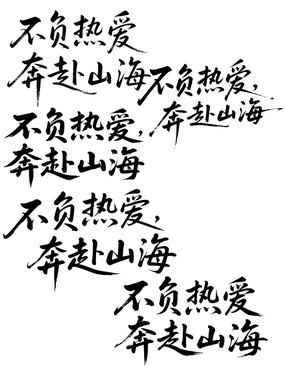 不负热爱
奔赴山海
不负热爱,
奔赴山海
不负热爱,
奔赴山海
不负热爱,
奔赴山海
不负热爱
奔赴山海